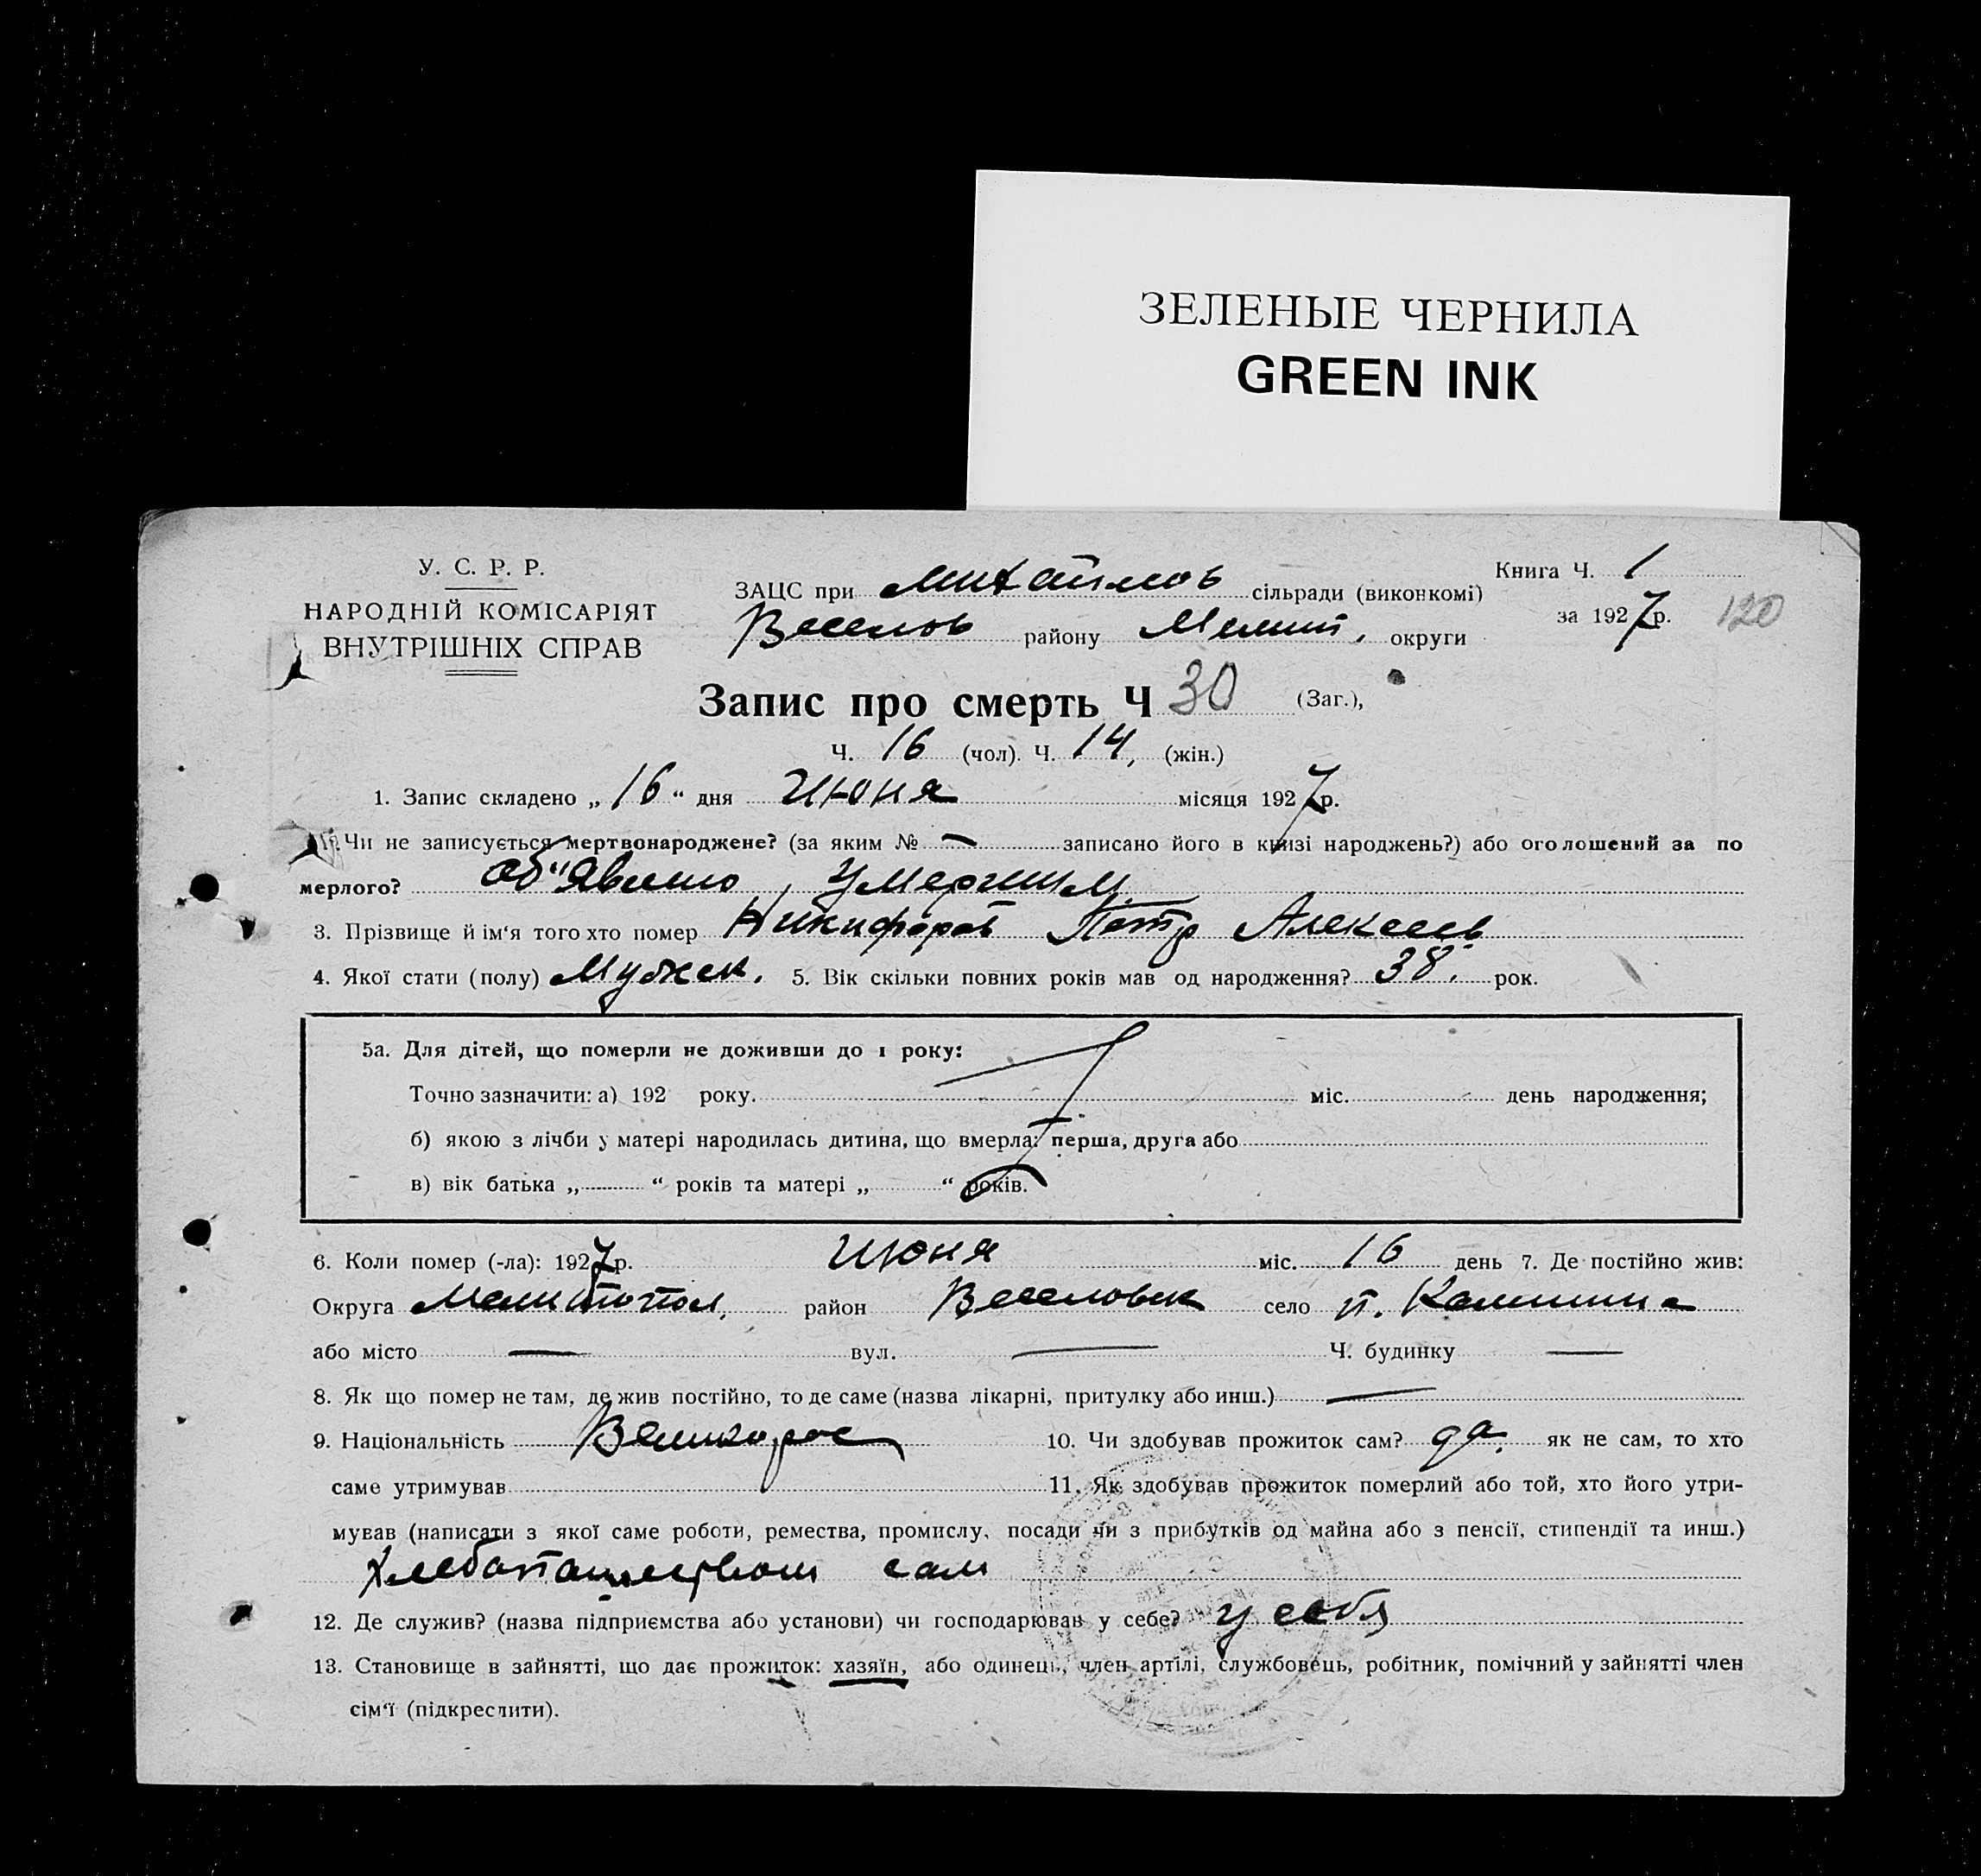 ЗЕЛЕНЫЕ ЧЕРНИЛА
GREEN INK
У. С. Р. Р.
НАРОДНІЙ КОМІСАРІЯТ
ВНУТРІШНІХ СПРАВ
ЗАЦС при Михайлов сільради (виконкомі)
Веселов району Мелит. округи
Книга Ч. 1
за 1927р.
120
Запис про смерть Ч 30 (Заг.),
Ч. 16 (чол). Ч. 14, (жін.)
1. Запис складено „16“ дня Июня місяця 1927р.
Чи не записується мертвонароджене? (за яким № — записано його в книзі народжень?) або оголошений за по
мерлого? Об"явлено умершим
3. Прізвище й ім‘я того хто помер Никифоров Петр Алексеев
4. Якої стати (полу) Мужск. 5. Вік скільки повних років мав од народження? 38. рок.
5а. Для дітей, що померли не доживши до 1 року:
Точно зазначити: а) 192 року. міс. день народження;
б) якою з лічби у матері народилась дитина, що вмерла: перша, друга або
в) вік батька „ “ років та матері „ “ років.
6. Коли помер (-ла): 1927р. Июня міс. 16 день 7. Де постійно жив:
Округа Мелитопол, район Веселовск село п. Калинина
або місто — вул. — Ч. будинку —
8. Як що помер не там, де жив постійно, то де саме (назва лікарні, притулку або инш.) —
9. Національність Великорос 10. Чи здобував прожиток сам? да. як не сам, то хто
саме утримував 11. Як здобував прожиток померлий або той, хто його утри-
мував (написати з якої саме роботи, ремества, промислу, посади чи з прибутків од майна або з пенсії, стипендії та инш.)
Хлебопашеством сам
12. Де служив? (назва підприємства або установи) чи господарював у себе? у себя
13. Становище в зайнятті, що дає прожиток: хазяїн, або одинець, член артілі, службовець, робітник, помічний у зайнятті член
сім‘ї (підкреслити).